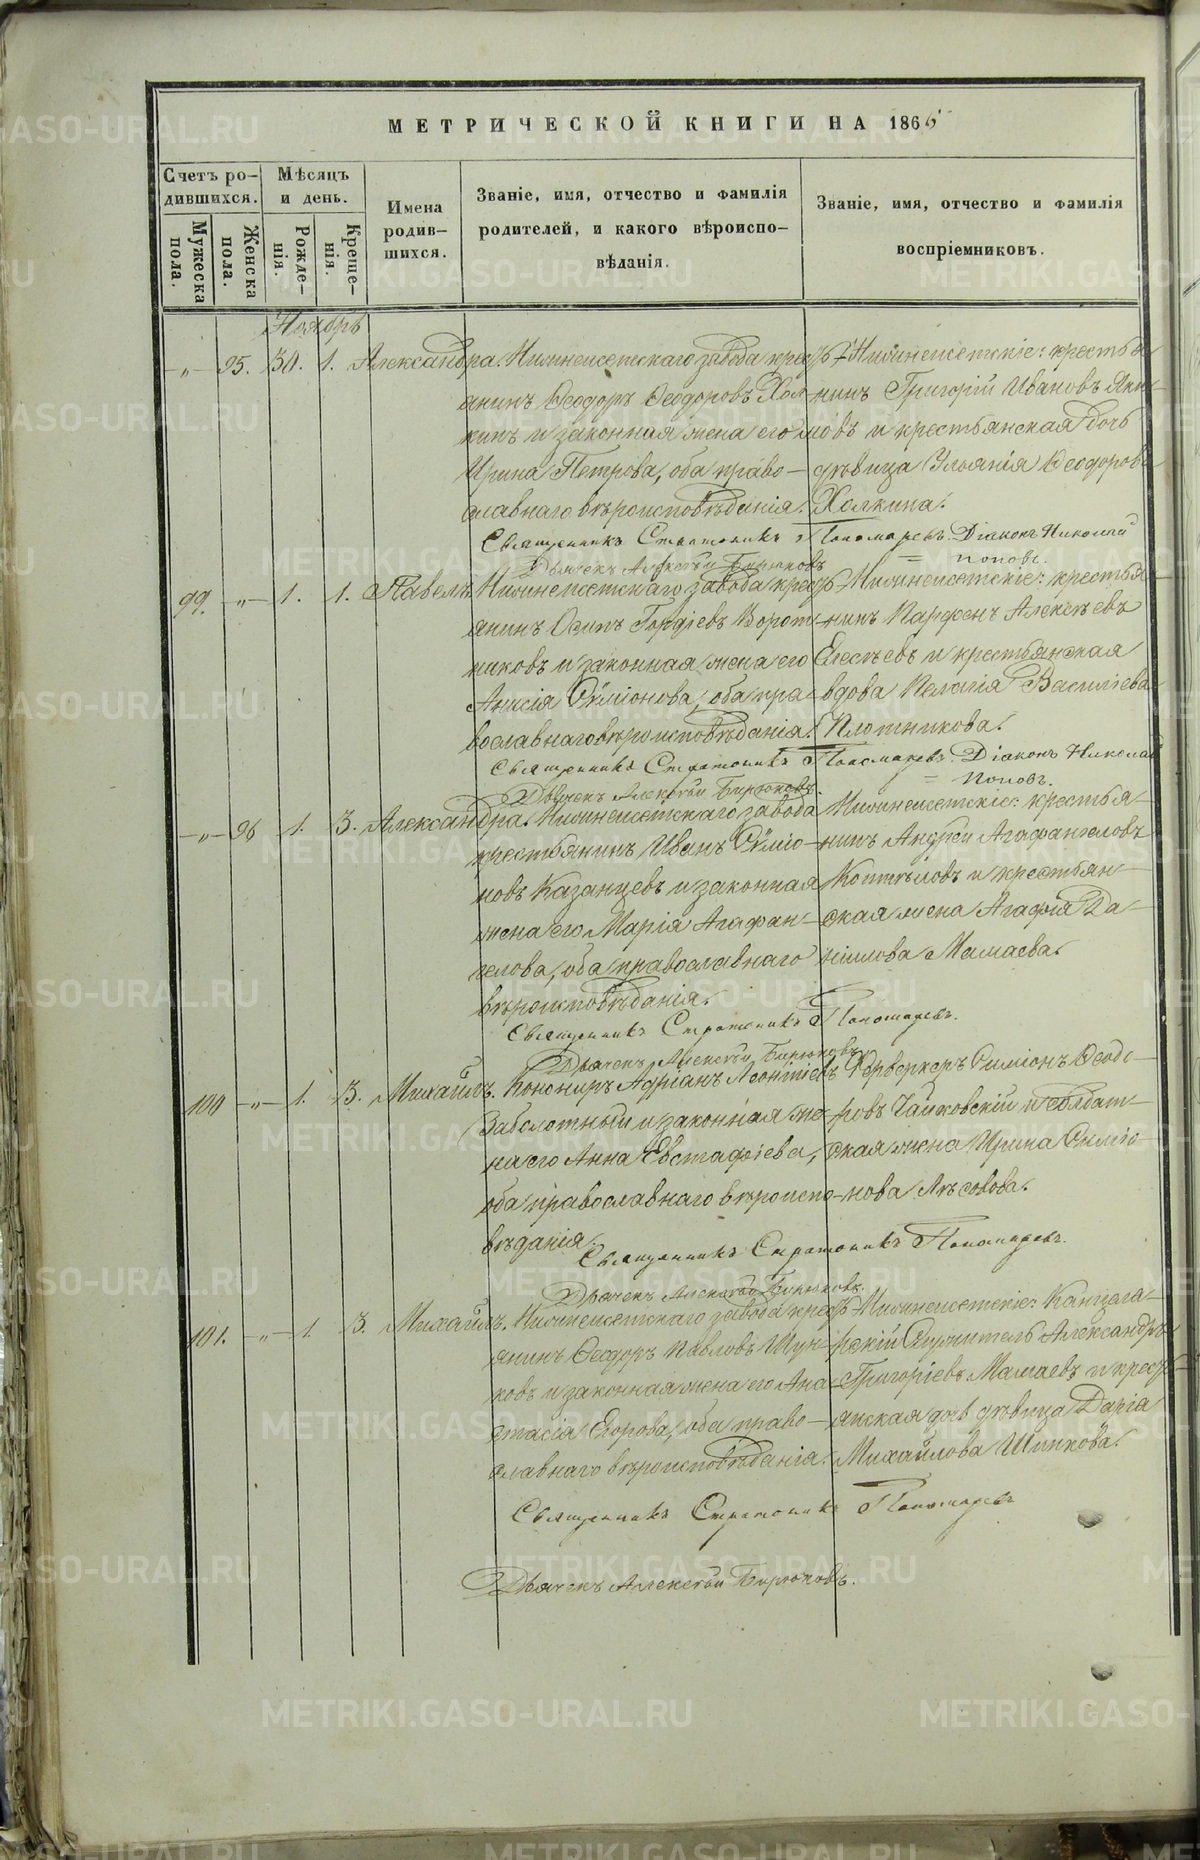 МЕТРИЧЕСКОЙ КНИГИ НА 186
Счетъ ро-
дившихся.
Мужеска пола.
Женска пола.
Мѣсяцъ
и день.
Рожде-
нія.
Креще-
нія.
Имена
родив-
шихся.
Званіе, имя, отчество и фамилія
родителей, и какого вѣроиспо-
вѣданія.
Званіе, имя, отчество и фамилія
воспріемниковъ.
Ноябрь
-„- 95. 30. 1. Александра.
Нижнеисетскаго завода крест-
янинъ Ѳеодоръ Ѳеодоровъ Хол-
кинъ и законная жена его
Ирина Петрова, оба право-
славнаго вѣроисповѣданія.
Нижнеисетскіе: крестья-
нинъ Григорій Ивановъ
мовъ и крестьянская дочь
дѣвица Ульянія Ѳеодорова
Холкина.
Священникъ Стратоникъ Пономаревъ. Діаконъ Николай
Поповъ.
Дьячекъ Алексѣй Бирюковъ
99. -„- 1. 1. Павелъ
Нижнеисетскаго завода крест-
янинъ Осипъ Гордіевъ Ворот-
никовъ и законная жена его
Анисія Сѵміонова, оба пра-
вославнаго вѣроисповѣданія.
Нижнеисетскіе: крестья-
нинъ Парфенъ Алексѣевъ
Елесѣевъ и крестьянская
вдова Пелагія Василіева
Плотникова.
Священникъ Стратоникъ Пономаревъ. Діаконъ Николай
Поповъ.
Дьячекъ Алексѣй Бирюковъ.
-„- 96 1. 3. Александра.
Нижнеисетскаго завода
крестьянинъ Иванъ Сѵміо-
новъ Казанцевъ и законная
жена его Марія Агафан-
гелова, оба православнаго
вѣроисповѣданія.
Нижнеисетскіе: крестья-
нинъ Андрей Агафангеловъ
Коптѣловъ и крестьян-
ская жена Агафія Да-
ніилова Мамаева.
Священникъ Стратоникъ Пономаревъ.
Дьячекъ Алексѣй Бирюковъ
100 -„- 1. 3. Михаилъ.
Кононръ Адріанъ Леонтіевъ
Заболотный и законная же-
на его Анна Евстафіева,
оба православнаго вѣроиспо-
вѣданія.
Ферверкеръ Симіонъ Ѳеодо-
ровъ Чайковскій и солдат-
ская жена Ирина Симіо-
нова Лѣсовова.
Священникъ Стратоникъ Пономаревъ.
Дьячекъ Алексѣй Бирюковъ.
101. -„- 1. 3. Михаилъ.
Нижнеисетскаго завода крест-
янинъ Ѳеодоръ Павловъ Шун-
ковъ и законная жена его Ана-
стасія Егорова, оба право-
славнаго вѣроисповѣданія.
Нижнеисетскіе: Канцеля-
рскій Служитель Александръ
Григоріевъ Мамаевъ и крест-
янская дочь дѣвица Дарія
Михайлова Шипкова.
Священникъ Стратоникъ Пономаревъ
Дьячекъ Алексѣй Бирюковъ.
METRIKI.GASO-URAL.RU